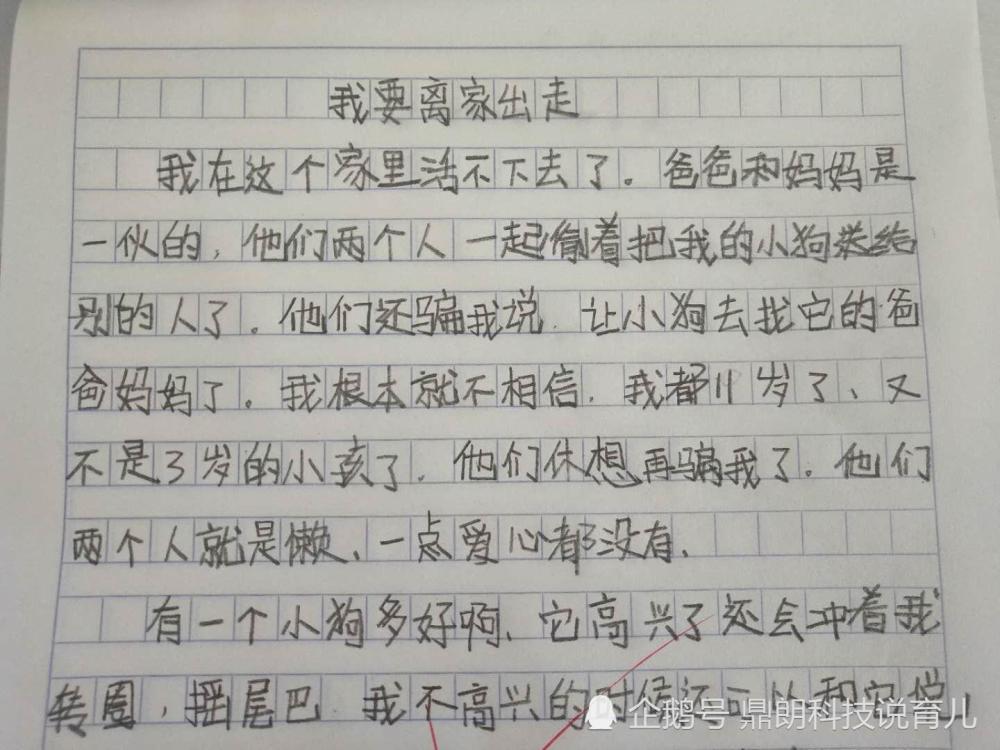 我要离家出走
我在这个家里活不下去了。爸爸和妈妈是
一伙的，他们两个人一起偷着把我的小狗送给
别的人了。他们还骗我说.让小狗去找它的爸
爸妈妈了。我根本就不相信.我都11岁了、又
不是3岁的小孩了.他们休想再骗我了.他们
两个人就是懒、一点爱心都没有、
有一个小狗多好啊、它高兴了还会冲着我
转圈，摇尾巴 我不高兴的时候还可以和它说
企鹅号 鼎朗科技说育儿